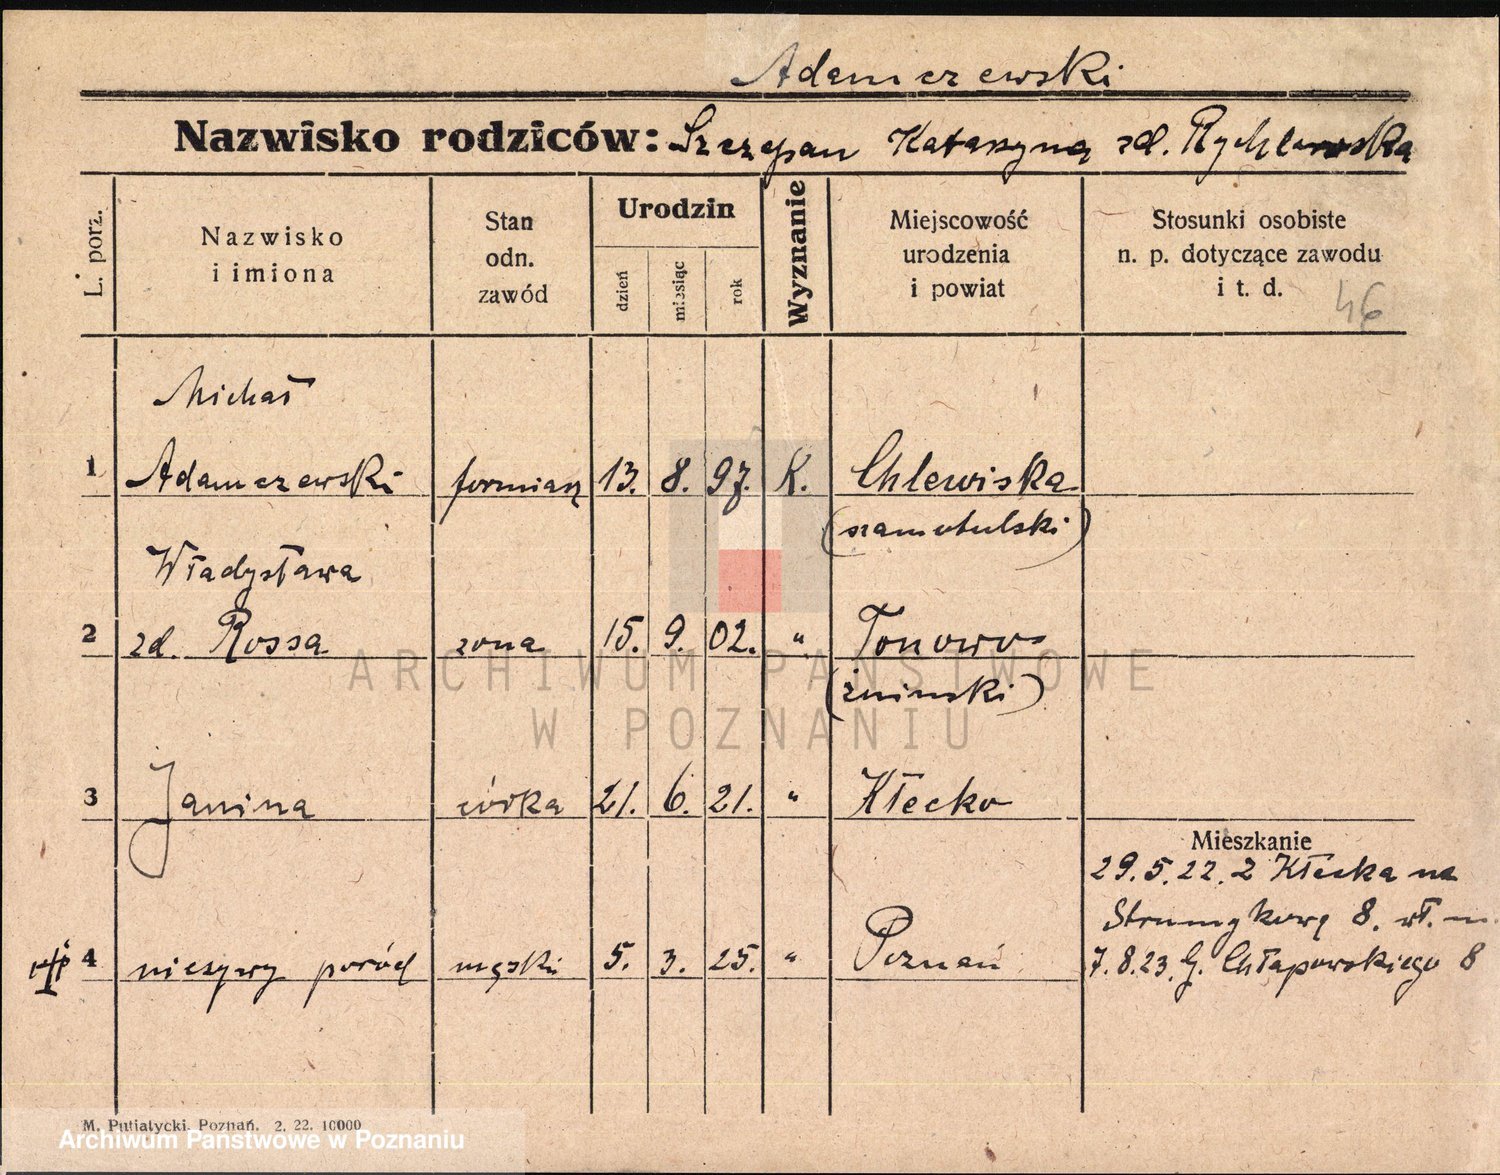 Adamczewski
Nazwisko rodziców: Szczepan Katarzyna zd. Rychlewska
L. porz.
Nazwisko
i imiona
Stan
odn.
zawód
Urodzin
dzień
miesiąc
rok
Wyznanie
Miejscowość
urodzenia
i powiat
Stosunki osobiste
n. p. dotyczące zawodu
i t. d.
46
Michał
1 Adamczewski formiarz 13. 8. 97. K. Chlewiska
(szamotulski)
Władysława
2 zd. Rossa żona 15. 9. 02. " Tonowo
(żniński)
3 Janina córka 21. 6. 21. " Kłecko
Mieszkanie
29.5.22. z Kłecka na
Strumykową 8. wł. m.
4 nieżywy poród męski 5. 3. 25. " Poznań
7.8.23. G. Chłapowskiego 8
ARCHIWUM PAŃSTWOWE
W POZNANIU
M. Putiatycki, Poznań. 2. 22. 10000
Archiwum Państwowe w Poznaniu